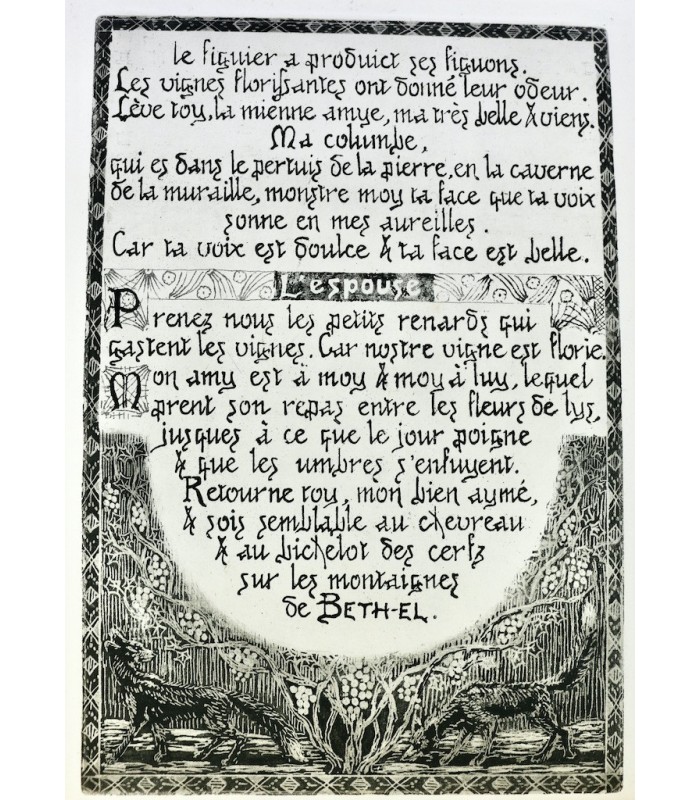 le figuier a produict ses figuons.
Les vignes florissantes ont donné leur odeur.
Lève toy, la mienne amye, ma très belle & viens.
Ma columbe,
qui es dans le pertuis de la pierre, en la caverne
de la muraille, monstre moy ta face que ta voix
sonne en mes aureilles.
Car ta voix est doulce & ta face est belle.
L'espouse
Prenez nous les petits renards qui
gastent les vignes. Car nostre vigne est florie.
Mon amy est à moy & moy à luy, lequel
prent son repas entre les fleurs de lys,
jusques à ce que le jour poigne
& que les umbres s'enfuyent.
Retourne toy, mon bien aymé,
& sois semblable au chevreau
& au bichelot des cerfz
sur les montaignes
de BETH-EL.